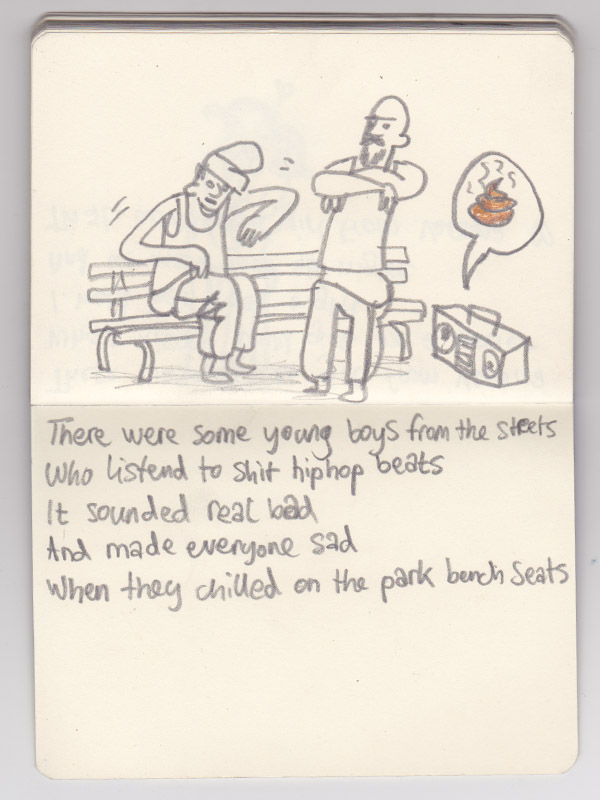 There were some young boys from the streets
Who listend to shit hiphop beats
It sounded real bad
And made everyone sad
When they chilled on the park bench seats